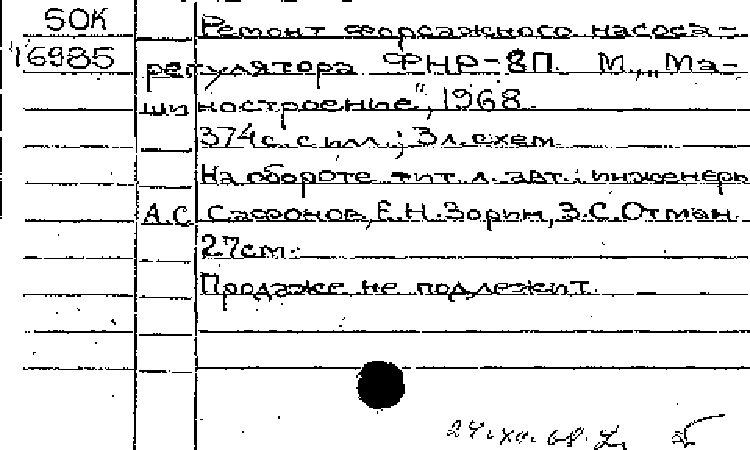 50К
16985
Ремонт форсажного насоса-
регулятора ФНР-8П. М., „Ма-
шиностроение", 1968.
374 с. с илл.; 3 л. схем
На обороте тит. л. авт.: инженеры
А.С. Сафонов, Е.Н. Зорин, Э.С. Отман
27 см.
Продаже не подлежит.